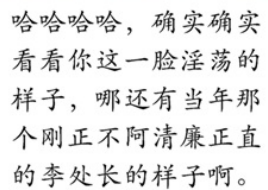 哈哈哈哈，确实确实
看看你这一脸淫荡的
样子，哪还有当年那
个刚正不阿清廉正直
的李处长的样子啊。